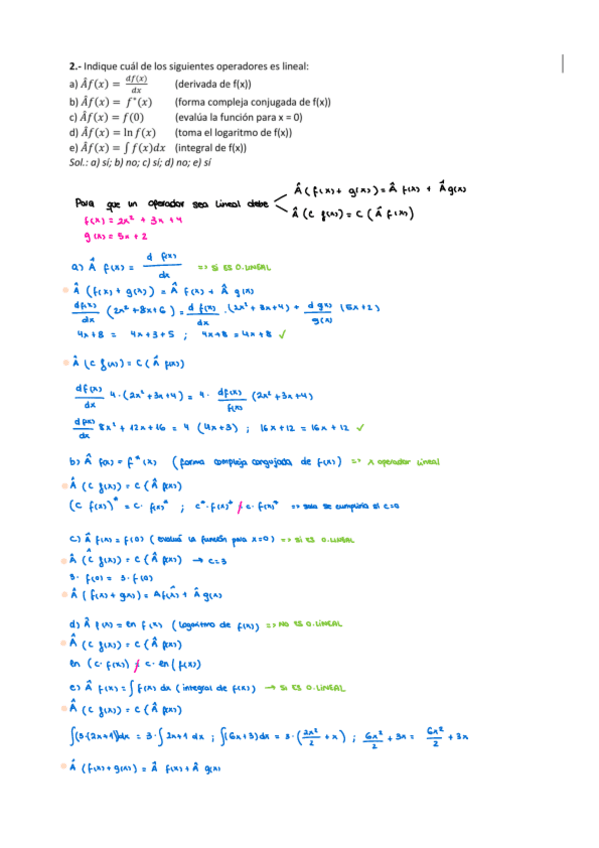 2.- Indique cuál de los siguientes operadores es lineal:
a) Âf(x) = df(x)/dx (derivada de f(x))
b) Âf(x) = f*(x) (forma compleja conjugada de f(x))
c) Âf(x) = f(0) (evalúa la función para x = 0)
d) Âf(x) = ln f(x) (toma el logaritmo de f(x))
e) Âf(x) = ∫ f(x)dx (integral de f(x))
Sol.: a) sí; b) no; c) sí; d) no; e) sí
Para que un operador sea lineal debe
Â(f(x) + g(x)) = Â f(x) + Â g(x)
Â(c f(x)) = c (Â f(x))
f(x) = 2x² + 3x + 4
g(x) = 5x + 2
a) Â f(x) = d f(x)/dx => SI ES O.LINEAL
Â (f(x) + g(x)) = Â f(x) + Â g(x)
df(x)/dx (2x² + 8x + 6) = d f(x)/dx · (2x² + 3x + 4) + d g(x)/g(x) (5x + 2)
4x + 8 = 4x + 3 + 5 ; 4x + 8 = 4x + 8 ✓
Â (c f(x)) = c (Â f(x))
df(x)/dx 4·(2x² + 3x + 4) = 4· df(x)/f(x) (2x² + 3x + 4)
df(x)/dx 8x² + 12x + 16 = 4 (4x + 3) ; 16x + 12 = 16x + 12 ✓
b) Â f(x) = f*(x) (forma compleja congujada de f(x)) => x operador lineal
Â (c f(x)) = c (Â f(x))
(c f(x))* = c· f(x)* ; c*· f(x)* ≠ c· f(x)* => solo se cumpliría si c=0
c) Â f(x) = f(0) (evaluá la función para x=0) => SI ES O.LINEAL
Â (c f(x)) = c (Â f(x)) → c=3
3· f(0) = 3· f(0)
Â (f(x) + g(x)) = Âf(x) + Â g(x)
d) Â f(x) = ln f(x) (logaritmo de f(x)) => NO ES O.LINEAL
Â (c f(x)) = c (Â f(x))
ln (c· f(x)) ≠ c· ln (f(x))
e) Â f(x) = ∫ f(x) dx (integral de f(x)) → SI ES O.LINEAL
Â (c f(x)) = c (Â f(x))
∫(3·(2x+1))dx = 3·∫ 2x+1 dx ; ∫(6x+3)dx = 3·(2x²/2 + x) ; 6x²/2 + 3x = 6x²/2 + 3x
Â (f(x) + g(x)) = Â f(x) + Â g(x)